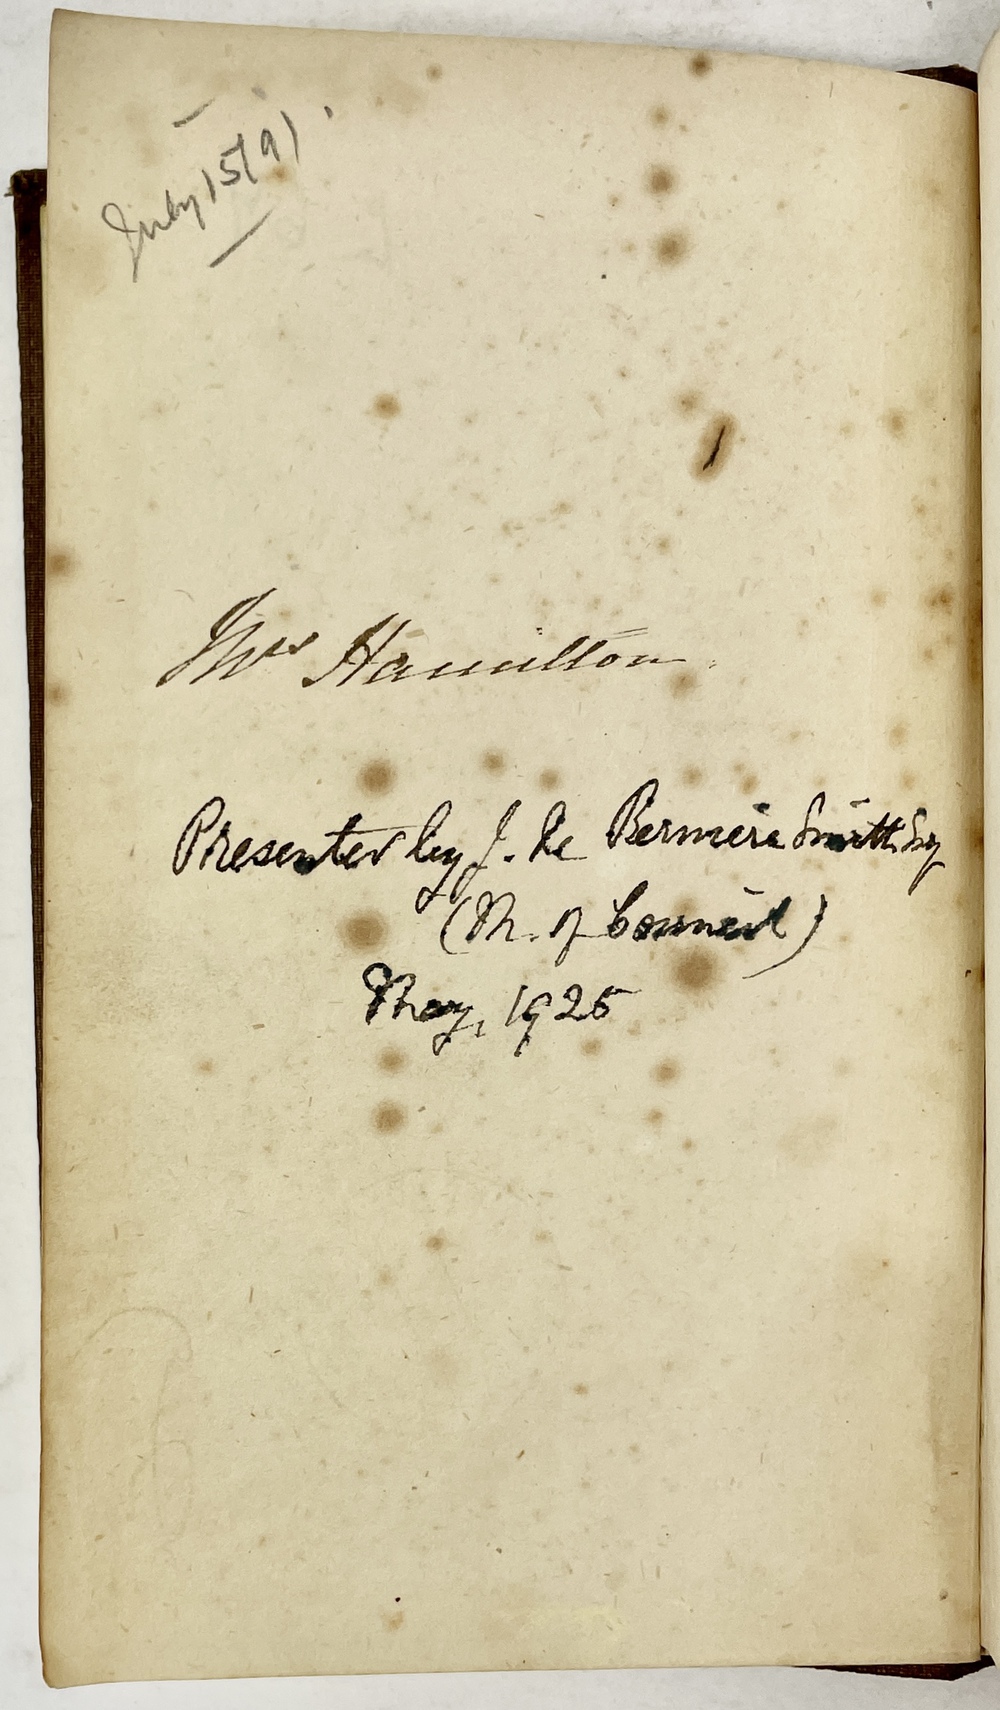 July 15/91
Mrs Hamilton.
Presented by J. de Berniere Smith Esq
(M. of Council)
May, 1925